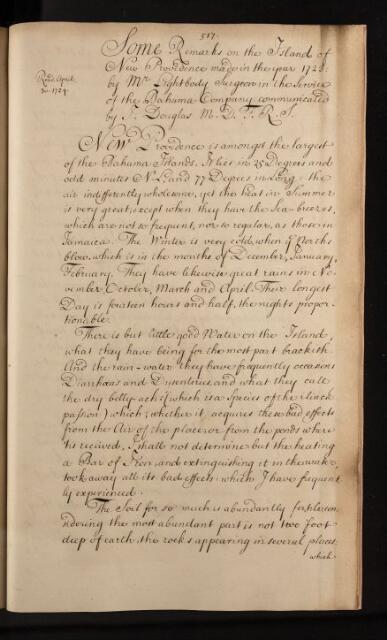 517.
Some Remarks on the Island of
New Providence made in the year 1723.
by Mr Lightbody Surgeon in the Service
of the Bahama Company communicated
by J. Douglas M. D. F. R. S.
Read April
1724.
New Providence is amongst the largest
of the Bahama Islands. It lies in 25 Degrees and
odd minutes N. L. and 77 Degrees in Long: the
air indifferently wholesome, yet the heat in Summer
is very great, except when they have the Sea-breezes,
which are not so frequent, nor so regular, as those in
Jamaica. The Winter is very cold, when ye North's
blow, which is in the months of December, January,
February. They have likewise great rains in No-
vember October, March and April. Their longest
Day is fourteen hours and half, the nights propor-
tionable.
There is but little good Water on the Island,
what they have being for the most part brackish.
And the rain-water they have frequently occasions
Diarrhœas and Dysenteries, and what they call
the dry belly-ach (which is a Species of the iliack
passion) which, whether it acquires these bad effects
from the Air of the place, or from the ponds where
'tis received, I shall not determine but the heating
a Bar of Iron and extinguishing it in the water,
took away all its bad effects: which I have frequent
ly experienced.
The Soil for so much is abundantly fertile, con-
sidering the most abundant part is not two foot
deep of earth, the rocks appearing in several places,
which